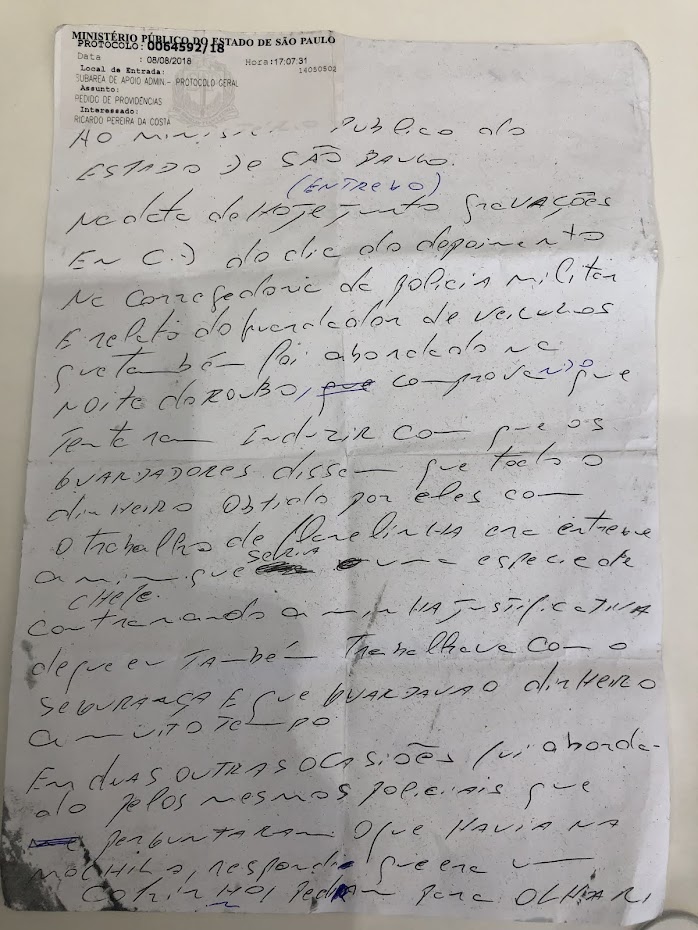 MINISTÉRIO PÚBLICO DO ESTADO DE SÃO PAULO
PROTOCOLO: 0064592/18
Data : 08/08/2018 Hora:17:07:31
Local da Entrada: 14050502
SUBAREA DE APOIO ADMIN.- PROTOCOLO GERAL
Assunto:
PEDIDO DE PROVIDÊNCIAS
Interessado:
RICARDO PEREIRA DA COSTA
AO MINISTÉRIO Publico do
ESTADO DE SÃO PAULO.
(ENTREVO)
Na data de HOJE junto GRAVAÇÕES
EM C.) do dia do depoimento
Na Corregedoria da policia militar
E relato do guardador de veiculos
que também foi abordado na
NOITE do ROUBO, que comprovaNDO que
Tentaram INDUZIR com que os
GUARDADORES dissem que todo o
dinHEIRO Obtido por eles com
O trabalho de flanelinHA era entregue
a mim que SERIA uma especie de
CHEFE.
contrariando a minHA JUSTIFICATIVA
de que eu TAmbém Trabalhava com o
SEGURANÇA E que GUARDAVA O dinHEIRO
a muito TEMPO
EM duAS OUTRAS OCASIÕES fui aborda-
do pelos mesmos policiais que
perguntaram O que HAVIA NA
MOCHILA, respondi que era um
COFRINHO, pediram para OLHAR,